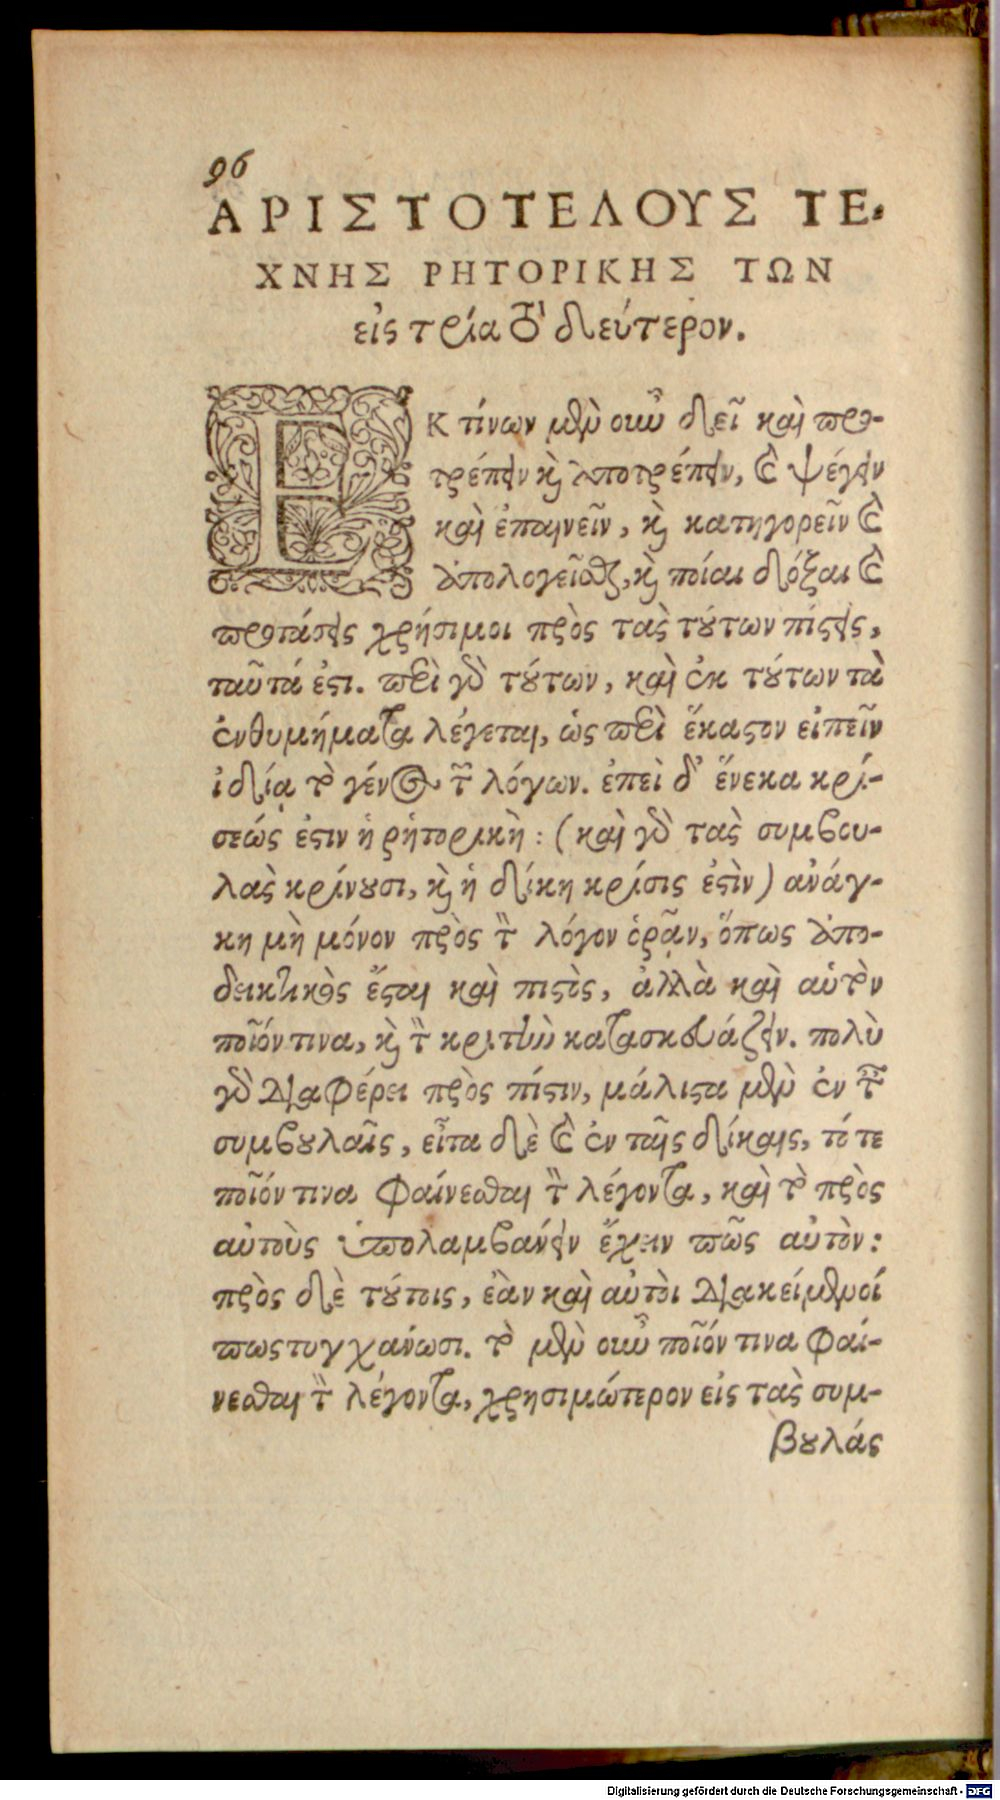 96
ΑΡΙΣΤΟΤΕΛΟΥΣ ΤΕ-
ΧΝΗΣ ΡΗΤΟΡΙΚΗΣ ΤΩΝ
εἰς τρία τὸ δεύτερον.
ΕΚ τίνων μὲν οὖν δεῖ καὶ προ-
τρέπειν καὶ ἀποτρέπειν, καὶ ψέγειν
καὶ ἐπαινεῖν, καὶ κατηγορεῖν καὶ
ἀπολογεῖσθαι, καὶ ποίαι δόξαι καὶ
προτάσεις χρήσιμοι πρὸς τὰς τούτων πίστεις,
ταῦτά ἐστι. περὶ γὰρ τούτων, καὶ ἐκ τούτων τὰ
ἐνθυμήματα λέγεται, ὡς περὶ ἕκαστον εἰπεῖν
ἰδίᾳ τὸ γένος τῶν λόγων. ἐπεὶ δ' ἕνεκα κρί-
σεώς ἐστιν ἡ ῥητορικὴ: (καὶ γὰρ τὰς συμβου-
λὰς κρίνουσι, καὶ ἡ δίκη κρίσις ἐστὶν) ἀνάγ-
κη μὴ μόνον πρὸς τὸν λόγον ὁρᾶν, ὅπως ἀπο-
δεικτικὸς ἔσται καὶ πιστὸς, ἀλλὰ καὶ αὑτὸν
ποῖόν τινα, καὶ τὸν κριτὴν κατασκευάζειν. πολὺ
γὰρ διαφέρει πρὸς πίστιν, μάλιστα μὲν ἐν ταῖς
συμβουλαῖς, εἶτα δὲ καὶ ἐν ταῖς δίκαις, τό τε
ποῖόν τινα φαίνεσθαι τὸν λέγοντα, καὶ τὸ πρὸς
αὐτοὺς ὑπολαμβάνειν ἔχειν πῶς αὐτὸν:
πρὸς δὲ τούτοις, ἐὰν καὶ αὐτοὶ διακείμενοί
πως τυγχάνωσι. τὸ μὲν οὖν ποῖόν τινα φαί-
νεσθαι τὸν λέγοντα, χρησιμώτερον εἰς τὰς συμ-
βουλάς
Digitalisierung gefördert durch die Deutsche Forschungsgemeinschaft - DFG